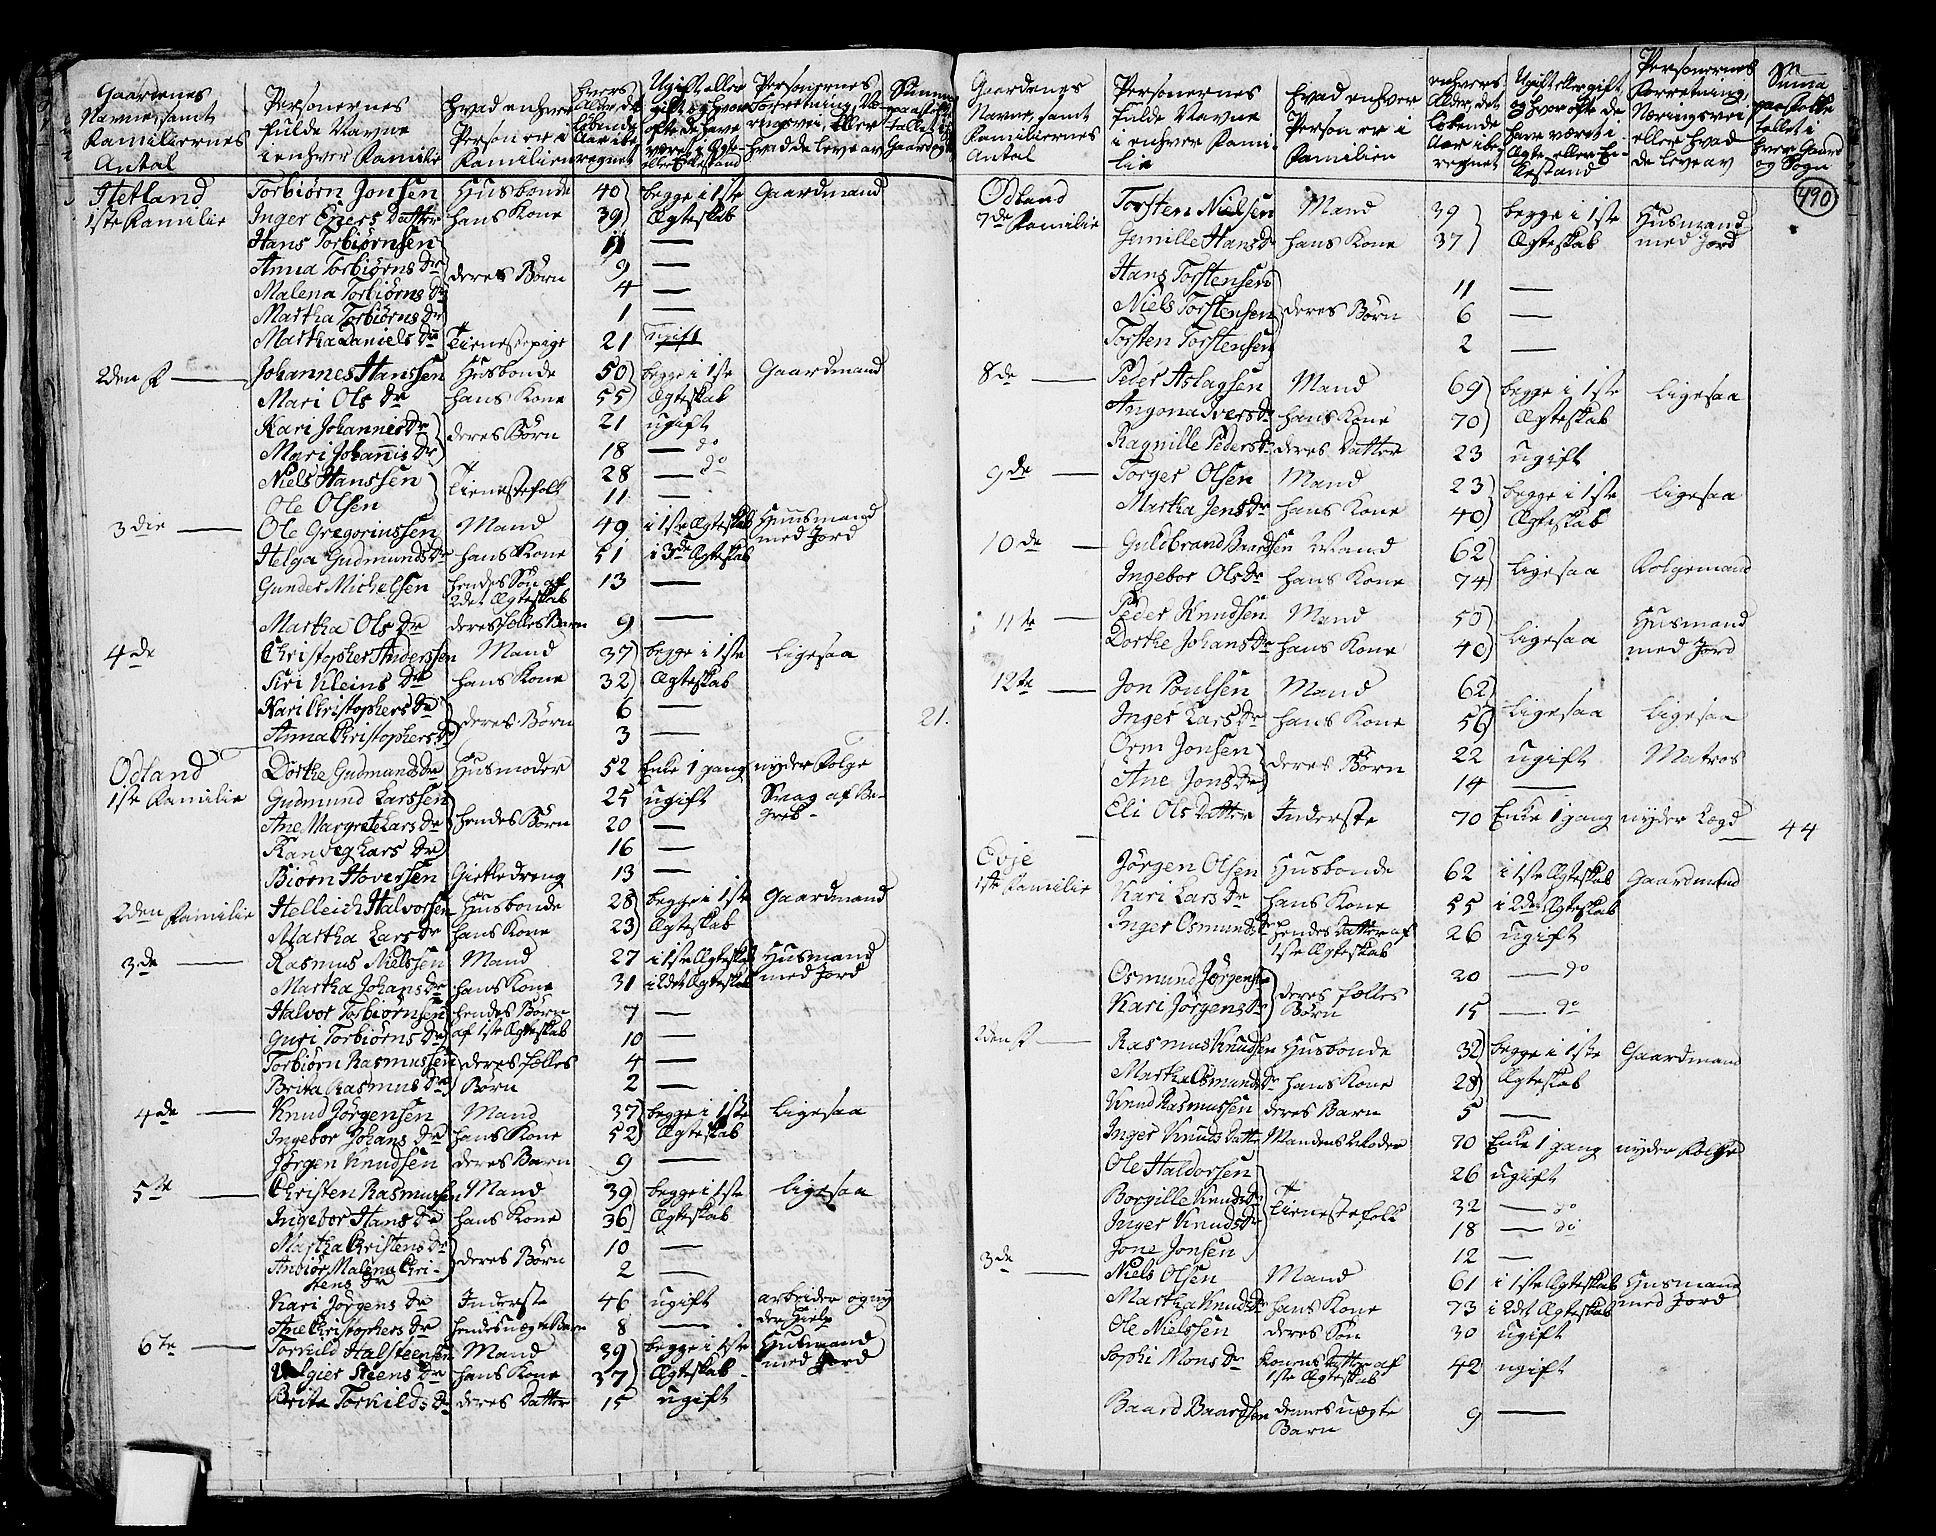 Gaardenes Navne, samt Familiernes Antal | Personernes fulde Navne i enhver Familie | Hvad enhver Person er i Familien | hvers Alder, det løbende Aar ibe regnet | Ugift eller gift, og hvor ofte de have været i Ægte eller Enkestand | Personernes Forretning, Næ ringsvei, eller hvad de leve av
Hetland Torbiørn Jonsen Husbonde 40 begge i 1ste Gaardmand
1ste Familie Inger Eners Datter hans Kone 39 Ægteskab
Hans Torbiørnsen 11 —
Anna Torbiørns Dr deres Børn 9 —
Malena Torbiørns Dr 4 —
Martha Torbiørns Dr 1 —
Martha Daniels Dr Tienestepige 21 ugift
2den F — Johannes Hanssen Husbonde 50 begge i 1ste Gaardmand
Mari Ols Dr hans Kone 55 Ægteskab
Kari Johannes Dr deres Børn 21 ugift
Mari Johannis Dr 18 — do
Niels Hanssen Tienestefolk 28 — do
Ole Olsen 11 —
3die — Ole Gregoriussen Mand 49 i 1ste Ægteskab Huusmand med Jord
Helga Gudmunds Dr hans Kone 51 i 3de Ægteskab
Gunder Michelsen hendes Søn af 2det Ægteskab 13 —
Martha Ols Dr deres fælles Barn 9 —
4de Christopher Anderssen Mand 37 begge i 1ste Ligesaa
Siri Kleins Dr hans Kone 32 Ægteskab
Kari Christophers Dr deres Børn 6 —
Anna Christophers Dr 3 — 21.
Odland Dorthe Gudmands Dr Husmoder 52 Enke 1 gang nyder Folge
1ste Familie Gudmund Larssen hendes Børn 25 ugift Svag af Be greb
Ane Margrete Lars Dr 20 —
Randeg Lars Dr 16 —
Biørn Hoversen Gietledreng 13 —
2den Familie Helleich Halvorsen Husbonde 28 begge i 1ste Gaardmand
Martha Lars Dr hans Kone 23 Ægteskab
3de — Rasmus Nielssen Mand 27 i 1ste Ægteskab Husmand med Jord
Martha Johans Dr hans Kone 31 i 2det Ægteskab
Halvor Torbiørnsen hendes Børn 7 —
Guri Torbiørns Dr af 1ste Ægteskab 10 —
Torbiørn Rasmussen deres fælles 4 —
Brita Rasmus Dr Børn 2 —
4de — Knud Jørgensen Mand 37 begge i 1ste Ligesaa
Ingebor Johans Dr hans Kone 52 Ægteskab
Jørgen Knudsen deres Barn 9 —
5te — Christen Rasmussen Mand 39 begge i 1ste Ligesaa
Ingebor Hans Dr hans Kone 36 Ægteskab
Martha Christens Dr deres Børn 10 —
Anbiør Malena Chri- stens Dr 2 —
Kari Jørgens Dr Inderste 46 ugift arbeider og ny der Hielp
Ane Christophers Dr hendes uægte Barn 8 —
6te — Torkild Halsteensen Mand 39 begge i 1ste Husmand med Jord
Steens Dr hans Kone 37 Ægteskab
Brita Torkilds Dr deres Datter 15 ugift
Gaardenes Navne, samt Familiernes Antal | Personernes fulde Navne i enhver Fami lie | Hvad enhver Person er i Familien | enhvers Alder, det løbende Aar ibe regnet | Ugift eller gift, og hvor ofte de have været i Ægte eller En kestand | Personernes Forretning, Næringsvei eller hvad de leve av | Suma paa folke tallet i hver Gaard og Sogn
490
Odland Torsten Nielsen Mand 39 begge i 1ste Husmand
7de Familie Gunille Hans Dr hans Kone 37 Ægteskab med Jord
Hans Torstensen 11 —
Niels Torstensen deres Børn 6 —
Torsten Torstensen 2 —
8de — Peder Aslagsen Mand 69 begge i 1ste Ligesaa
Angona Ivers Dr hans Kone 70 Ægteskab
Ragnille Peders Dr deres Datter 23 ugift
9de — Torger Olsen Mand 23 begge i 1ste Ligesaa
Martha Jens Dr hans Kone 40 Ægteskab
10de — Guldbrand Baardsen Mand 62 Ligesaa Folgemand
Ingebor Ols Dr hans Kone 74
11te — Peder Knudsen Mand 50 Ligesaa Husmand
Dorthe Johans Dr hans Kone 40 med Jord
12te — Jon Poulsen Mand 62 Ligesaa Ligesaa
Inger Lars Dr hans Kone 56
Orm Jonsen deres Børn 22 ugift Matros
Ane Jons Dr 14 —
Eli Ols Datter Inderste 70 Enke 1 gang nyder Lægd 44
Evje Jørgen Olsen Husbonde 62 i 1ste Ægteskab Gaardmand
1ste Familie Kari Lars Dr hans Kone 55 i 2det Ægteskab
Inger Osmunds Dr hendes Datter af 1ste Ægteskab 26 ugift
Osmund Jørgensen deres fælles 20 — do
Kari Jørgens Dr Børn 15 — do
2den F — Rasmus Knudsen Husbonde 32 begge i 1ste Gaardmand
Martha Osmunds Dr hans Kone 28 Ægteskab
Knud Rasmussen deres Barn 5 —
Inger Knuds Datter Mandens Moder 70 Enke 1 gang nyder Folge
Ole Haldorsen Tienestefolk 26 ugift
Borgille Knuds Dr 32 — do
Inger Knuds Dr 18 — do
Jone Jonsen 12 —
3de — Niels Olsen Mand 61 i 1ste Ægteskab Husmand
Martha Knuds Dr hans Kone 73 i 2det Ægteskab med Jord
Ole Nielssen deres Søn 30 ugift
Sophi Mons Dr Konens Datter af 1ste Ægteskab 42 ugift
Baard Baardsen dennes uægte Barn 9 —